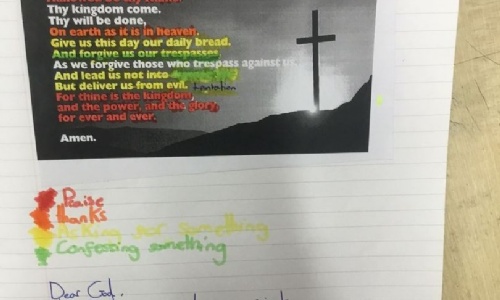 Thy kingdom come.
Thy will be done,
On earth as it is in heaven.
Give us this day our daily bread.
And forgive us our trespasses
As we forgive those who trespass against us.
And lead us not into
But deliver us from evil. temtation
For thine is the kingdom
and the power, and the glory,
for ever and ever.
Amen.
Praise
thanks
Asking for something
Confessing something
Dear God,